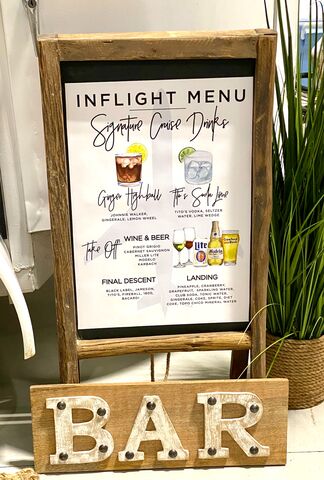 INFLIGHT MENU
Signature Cruise Drinks
Ginger Highball
JOHNNIE WALKER,
GINGERALE, LEMON WHEEL
Tito's Soda Lime
TITO'S VODKA, SELTZER
WATER, LIME WEDGE
Take Off
WINE & BEER
PINOT GRIGIO
CABERNET SAUVIGNON
MILLER LITE
MODELO
KARBACH
Lite
Modelo
FINAL DESCENT
BLACK LABEL, JAMESON,
TITO'S, FIREBALL, 1800,
BACARDI
LANDING
PINEAPPLE, CRANBERRY,
GRAPEFRUIT, SPARKLING WATER,
CLUB SODA, TONIC WATER,
GINGERALE, COKE, SPRITE, DIET
COKE, TOPO CHICO MINERAL WATER
BAR